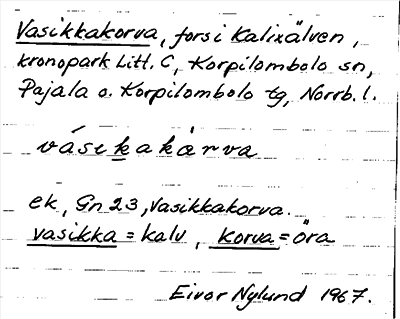 Vasikkakorva, fors i Kalixälven,
kronopark Litt. C, Korpilombolo sn,
Pajala o. Korpilombolo tg, Norrb. l.
vásikakȧrva
ek, Gn 23, Vasikkakorva.
vasikka = kalv, korva = öra
Eivor Nylund 1967.